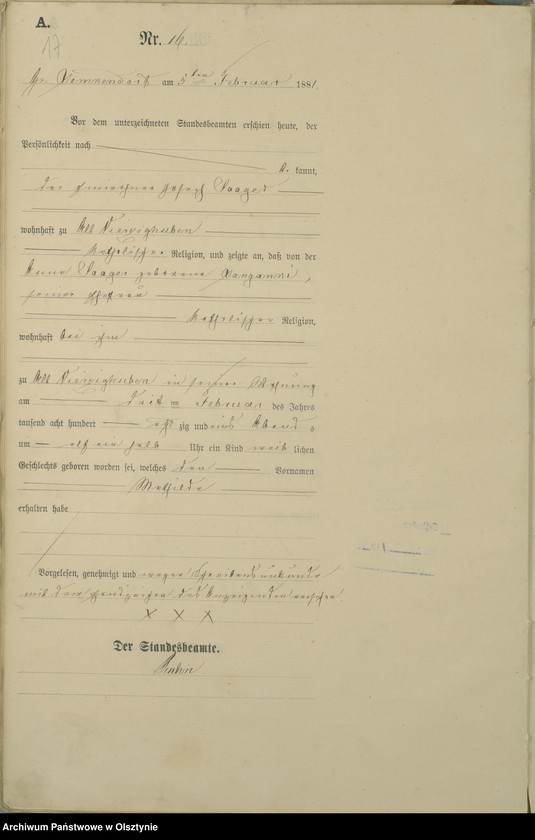 A.
17
Nr. 16.
Gr. am 5ten Februar 1881.
Vor dem unterzeichneten Standesbeamten erschien heute, der
Persönlichkeit nach
kannt,
der Joseph
wohnhaft zu Alt Vierzighuben
katholischer Religion, und zeigte an, daß von der
Anna geborene
seiner Ehefrau
katholischer Religion,
wohnhaft bei ihm
zu Alt Vierzighuben in seiner Wohnung
am Februar des Jahres
tausend acht hundert acht zig und eins Abends
um elf ein halb Uhr ein Kind weib lichen
Geschlechts geboren worden sei, welches den Vornamen
Mathilde
erhalten habe
Vorgelesen, genehmigt und wegen Schreibensunkunde
mit dem Handzeichen des Anzeigenden versehen.
X X X
Der Standesbeamte.
Archiwum Państwowe w Olsztynie